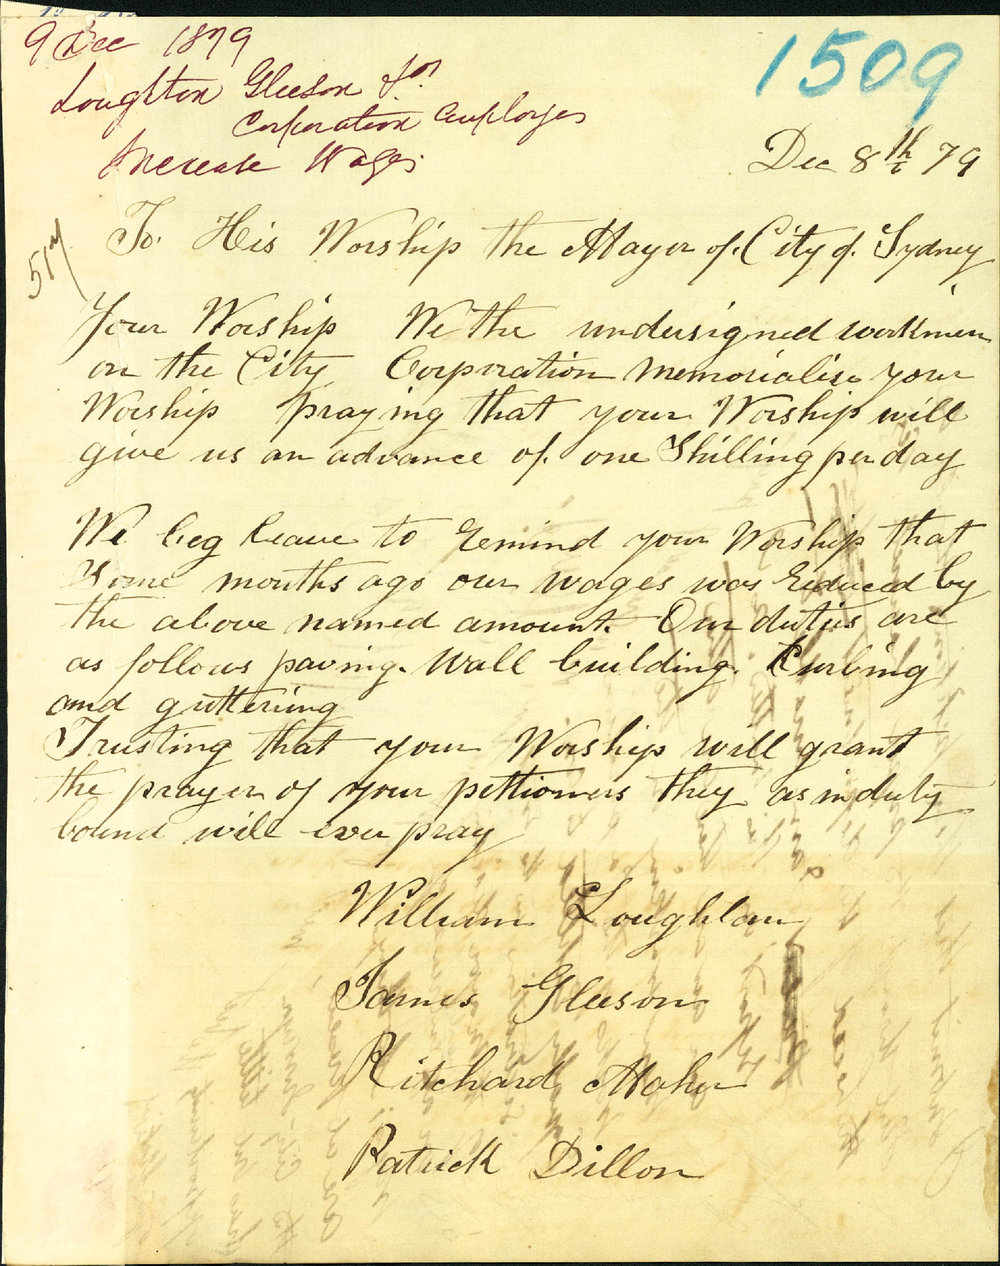 9 Dec 1879
Loughton Gleeson & or
Corporation employes
Increase Wages
1509
Dec 8th 79
517
To. His Worship the Mayer of. City of. Sydney
Your Worship We the undersigned workmen
on the City Corporation memorialise your
Worship praying that your Worship will
give us an advance of. one Shilling per day
We beg leave to remind your Worship that
Some months ago our wages was reduced by
the above named amount. Our duties are
as follows paving. Wall building. Curbing
and guttering
Trusting that your Worship will grant
the prayer of your pettioners they as in duty
bound will ever pray
William Loughlan
James Gleeson
Ritchard Maher
Patrick Dillon